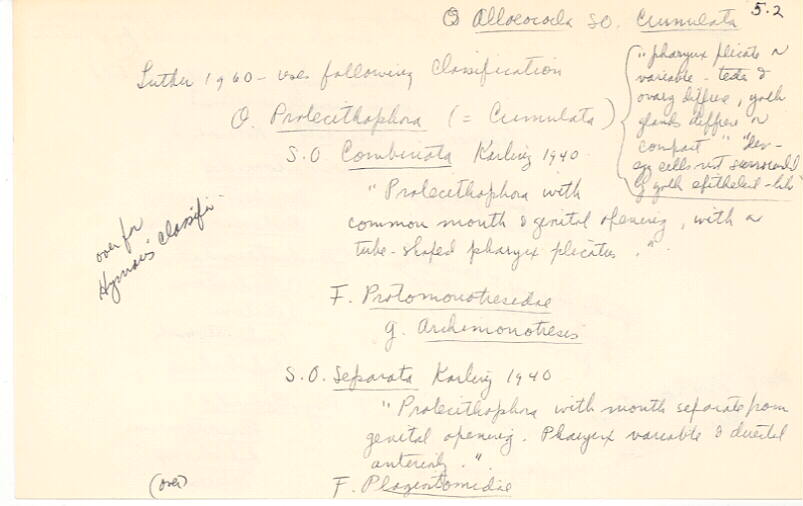 O Alloeocoela SO. Cumulata 5.2
Luther 1960 - uses following classification
O. Prolecithophora (= Cumulata)
"pharynx plicate or
variable - testes &
ovary diffuse, yolk
glands diffuse or
compact" "dev-
egg cells not surrounded
by yolk epithelial-like"
S.O Combinata Karling 1940
"Prolecithophora with
common mouth & genital opening, with a
tube-shaped pharynx plicatus."
over for
Hyman's classifi.
F. Protomonotresidae
g. Archimonotresis
S.O. Separata Karling 1940
"Prolecithophora with mouth separate from
genital opening. Pharynx variable & directed
anteriorly."
F. Plagiostomidae
(over)